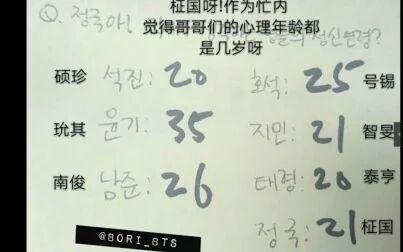 Q. 정국아!
柾国呀!作为忙内
觉得哥哥们的心理年龄都
是几岁呀
정신연령?
硕珍 석진: 20
호석: 25 号锡
玧其 윤기: 35
지민: 21 智旻
南俊 남준: 26
태형: 20 泰亨
정국: 21 柾国
@BORI_BTS